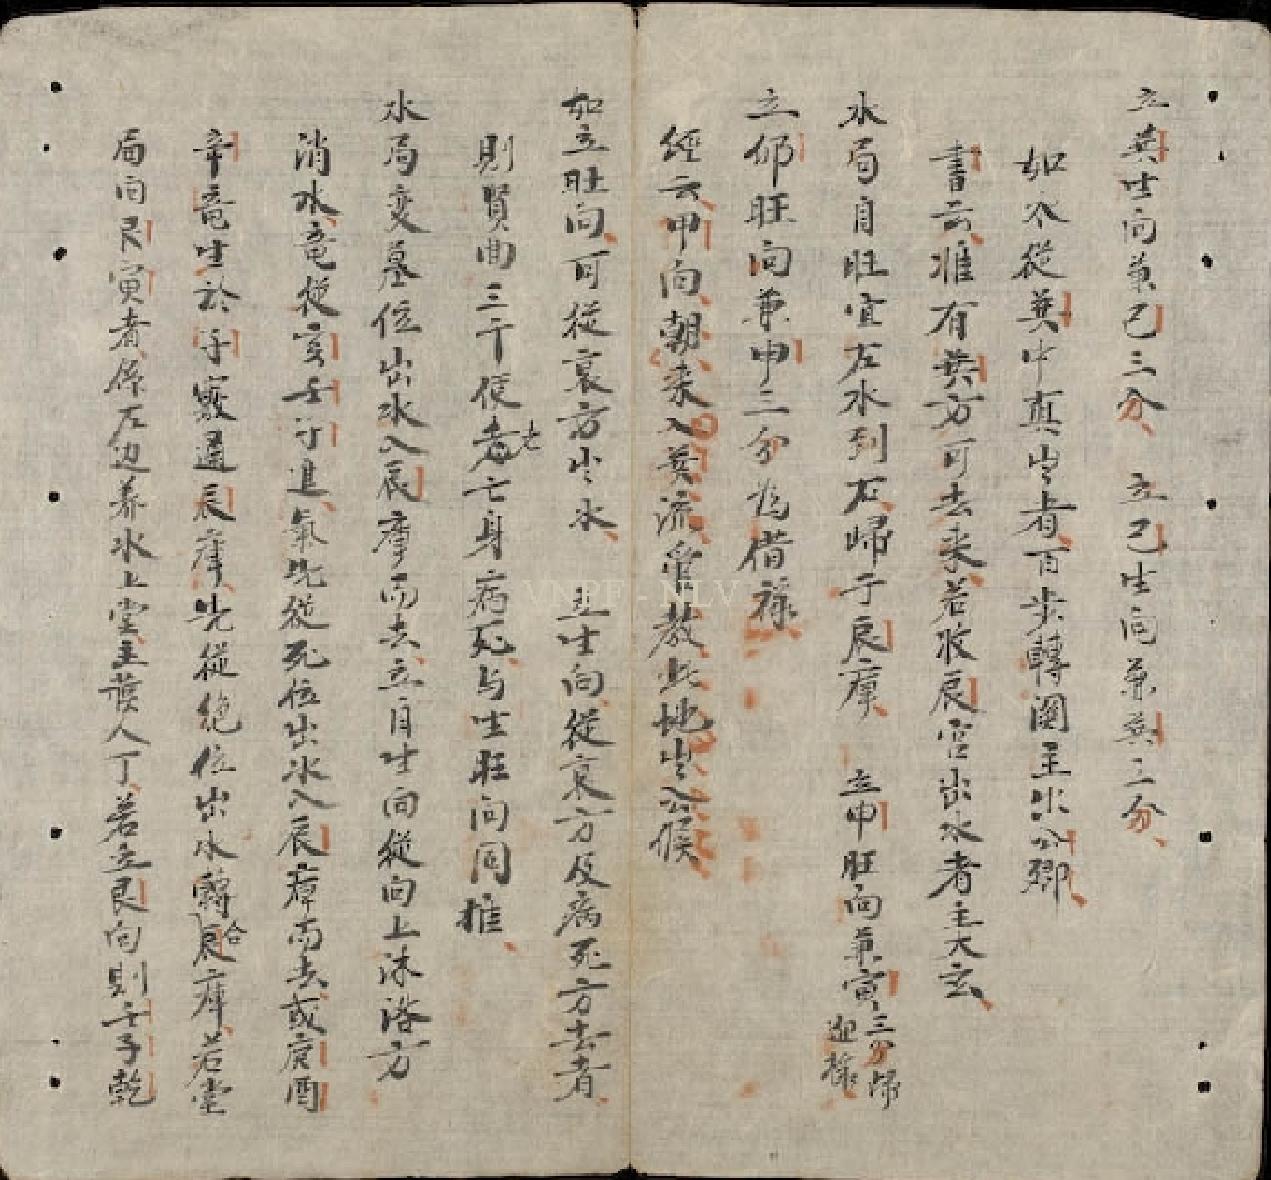 立巽生向兼巳三分 立巳生向兼巽三分
如水從巽中真出者百步轉闌主出公卿
書云惟有巽方可去来若收辰宮出水者主大玄
水局自旺宜左水到右歸于辰庫 立甲旺向兼寅三分歸迎祿
立卯旺向兼甲三分為借祿
經云甲向朝来入巽流管教此地出公侯
如立旺向可從衰方出水 立生向從衰方及病死方去者
則賢曲三千使老亡身病死与生旺向同推
水局变墓位出水入辰庫而去立自生向從向上沐浴方
消水竜從亥壬子進氣先從死位出水入辰庫而去或庚酉
辛竜生於子竅通辰庫先從绝位出水轉合辰庫若堂
局向艮寅者係左边养水上堂主發人丁若立艮向則壬子乾
VNPF - NLV